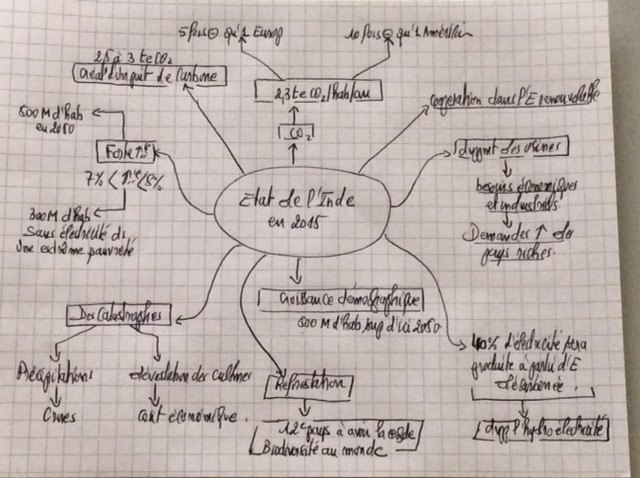 5 fois ⊖ qu'1 Europ
10 fois ⊖ qu'1 Américain
2,5 à 3 te CO2
de Carbone
2,3 te CO2/hab/an
CO2
coopération dans l'E renouvelable
500 M d'hab
en 2050
Forte
7% < < 8%
300 M d'hab
sans électricité ds
une extrême pauvreté
Etat de l'Inde
en 2015
dvppmt des usines
besoins économiques
et industriels
Demandes ↑ des
pays riches.
Croissance démographique
500 M d'hab sup d'ici 2050
Des catastrophes
Précipitations
dévastation des cultures
Crues
coût économique.
Reforestation
12e pays à avoir la
Biodiversité au monde
40% d'électricité sera
produite à partir d'E
décarbonée.
l'hydroélectricité